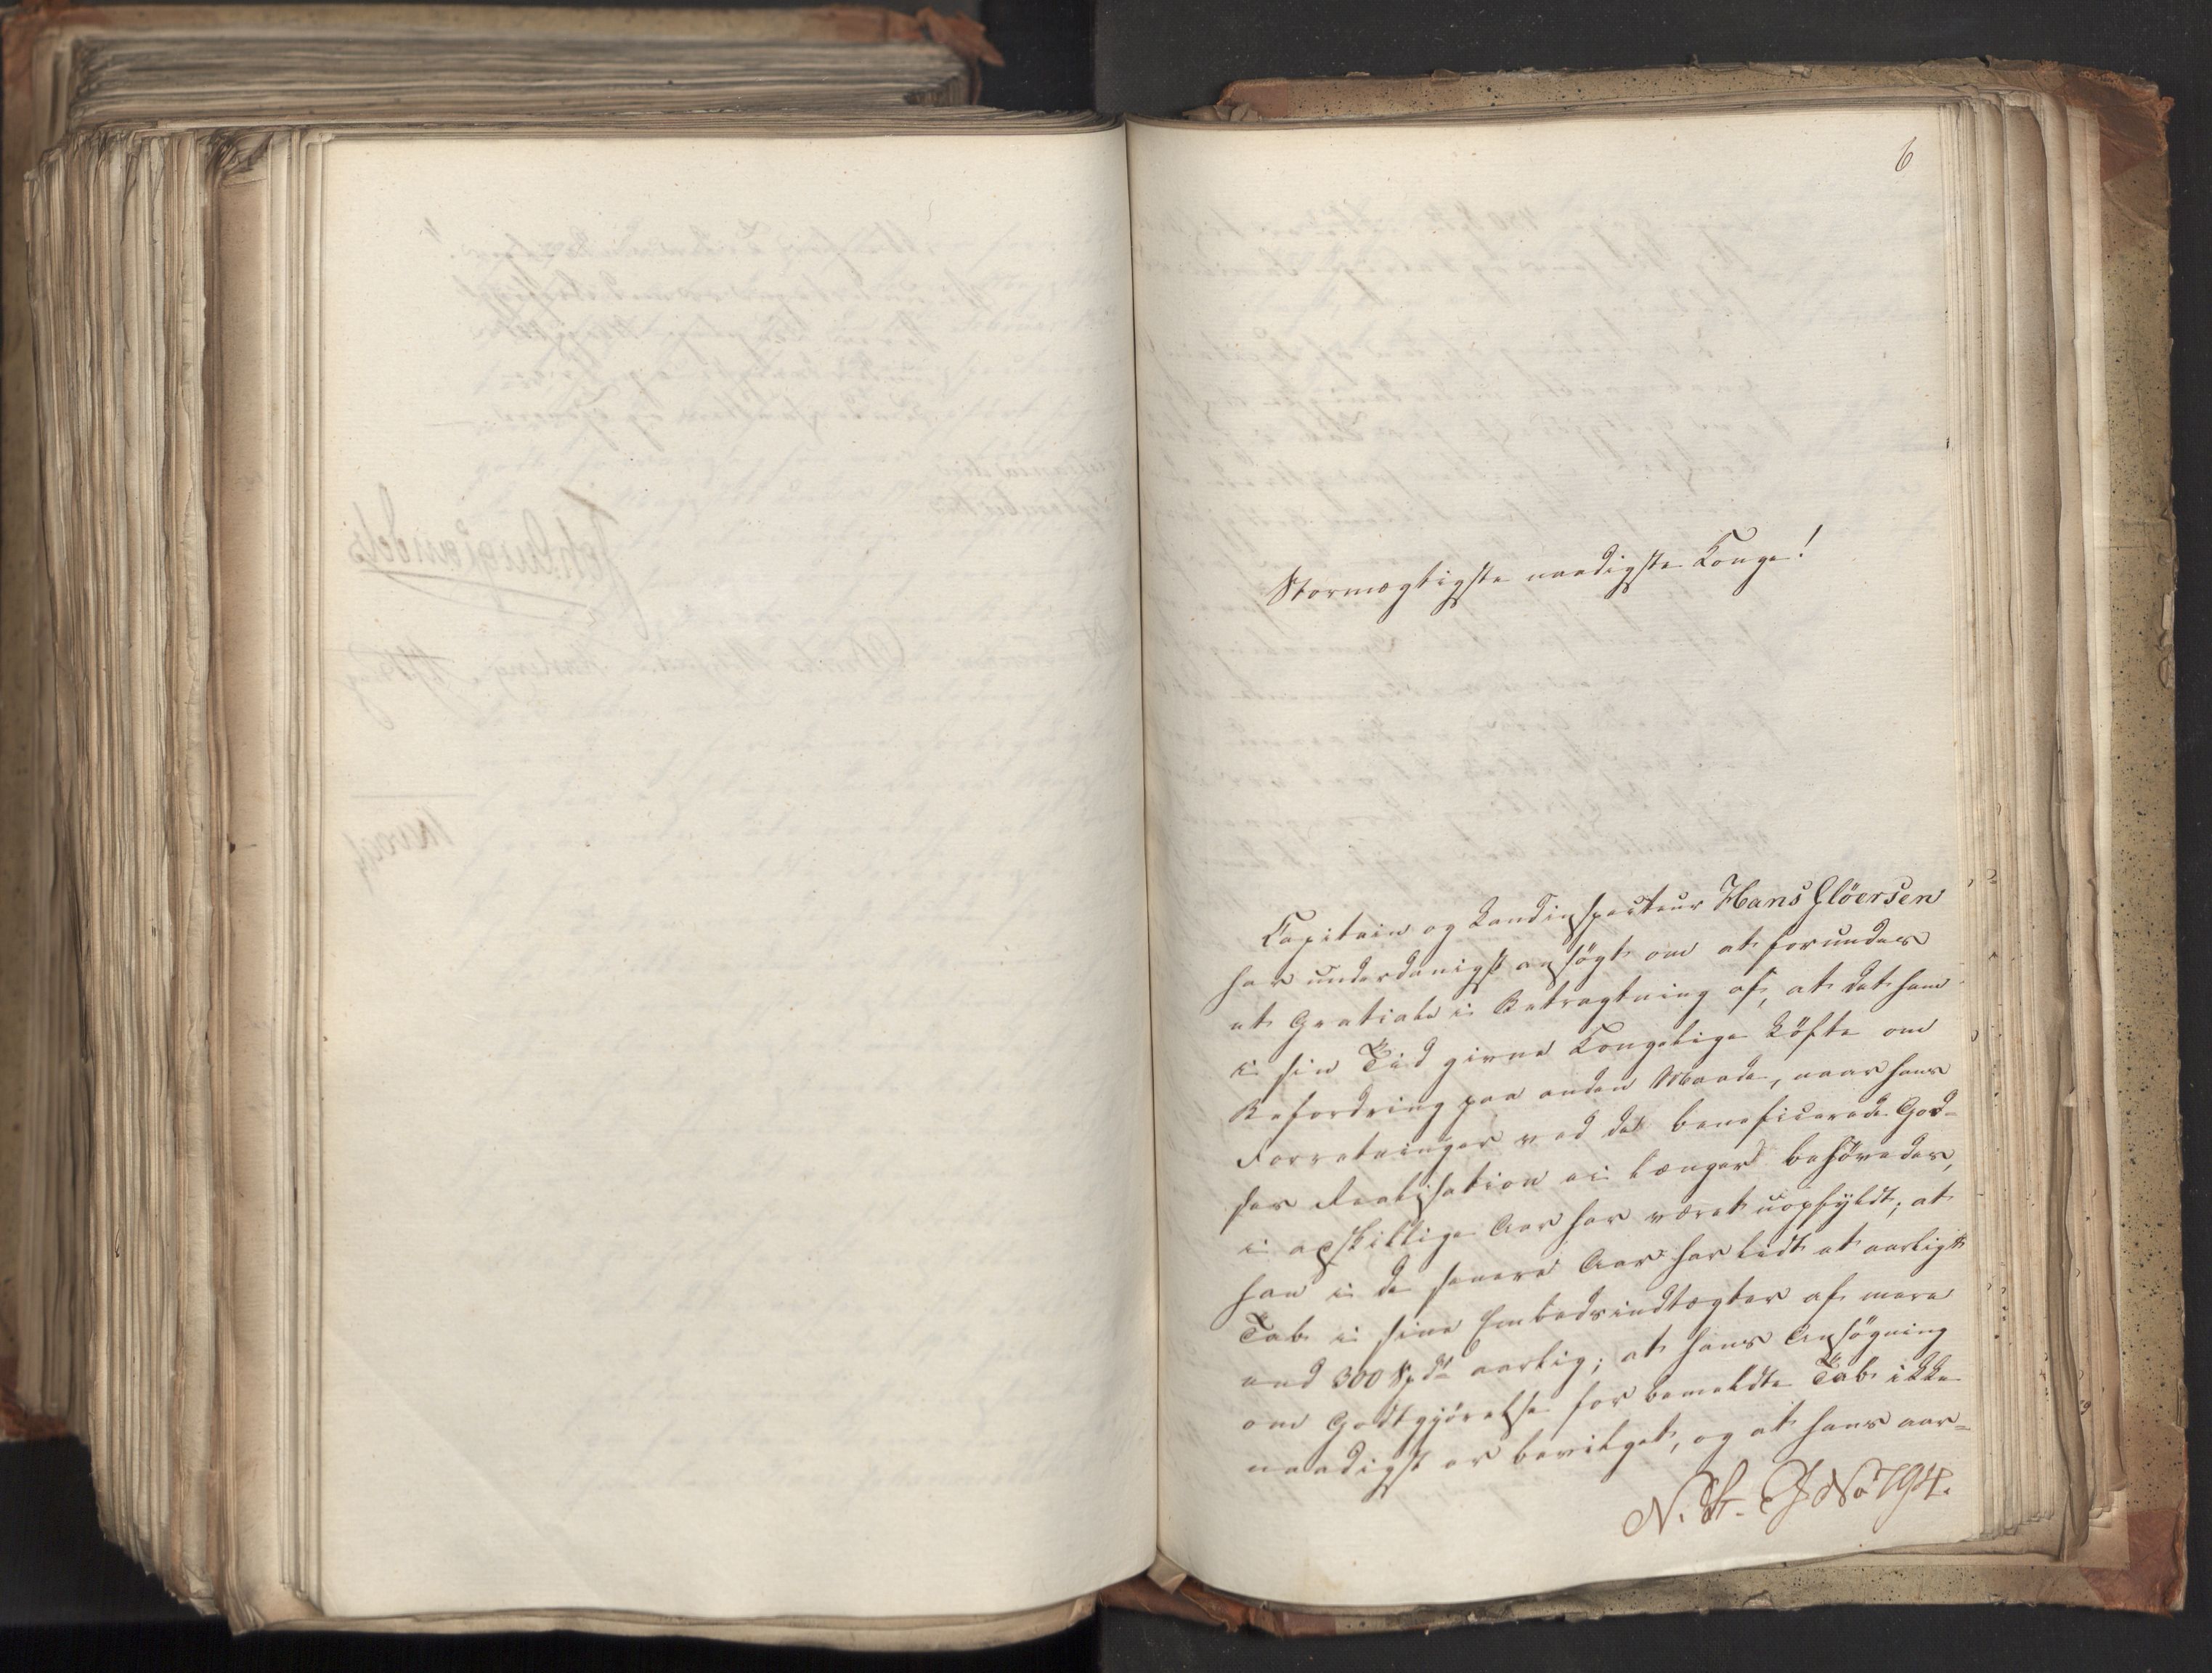 6
Stormægtigste naadigste Konge!
Capitain og Landinspecteur Hans Glöersen
har underdanigst ansögt om at forundes
et Gratiale i Betragtning af, at det ham
i sin Tid givne Kongelige Löfte om
Befordring paa anden Maade, naar hans
Forretninger ved det beneficerede God-
ses Realisation ei længer behövedes,
i adskillige Aar har været uopfyldt; at
han i de senere Aar har lidt et aarligt
Tab i sine Embedsindtægter af mere
end 300 Spd aarlig; at hans Ansögning
om Godtgjörelse for bemeldte Tab ikke
naadigst er bevilget, og at hans aar-
N. St. J No 794.